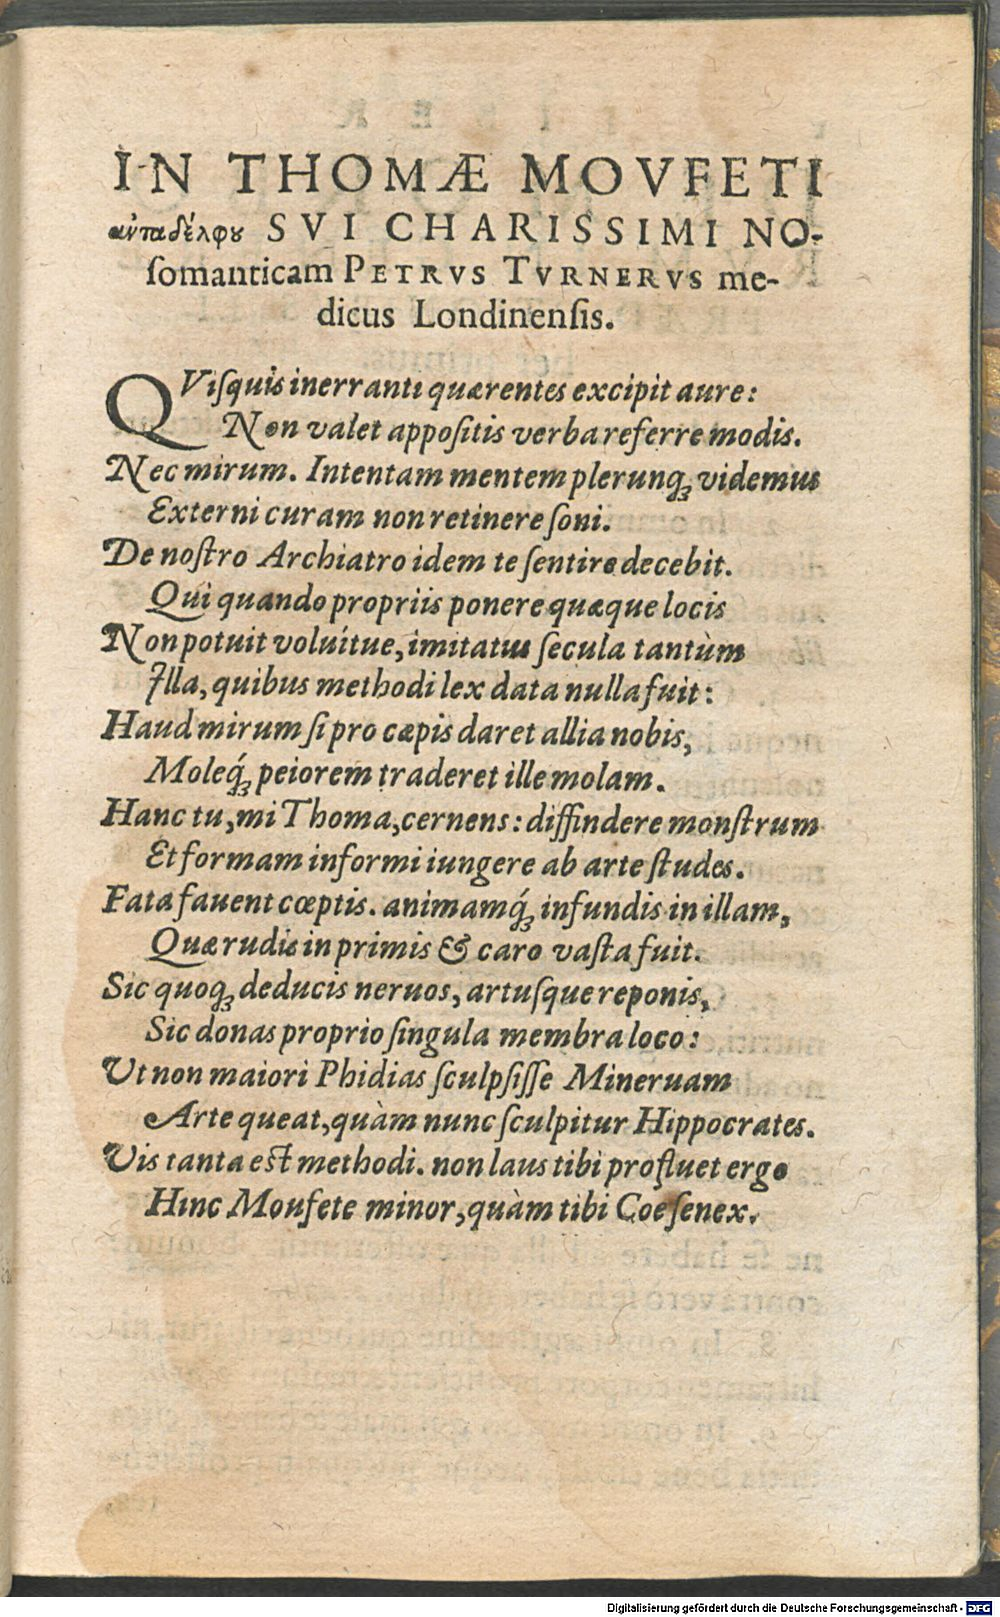 IN THOMÆ MOVFETI
αὐταδέλφȣ SVI CHARISSIMI NO-
ſomanticam PETRVS TVRNERVS me-
dicus Londinenſis.
QViſquis inerranti quærentes excipit aure:
Non valet appoſitis verba referre modis.
Nec mirum. Intentam mentem plerunqꝫ videmus
Externi curam non retinere ſoni.
De noſtro Archiatro idem te ſentire decebit.
Qui quando propriis ponere quæque locis
Non potuit voluítue, imitatus ſecula tantùm
Illa, quibus methodi lex data nulla fuit:
Haud mirum ſi pro cæpis daret allia nobis,
Moleq́ꝫ peiorem traderet ille molam.
Hanc tu, mi Thoma, cernens: diffindere monſtrum
Et formam informi iungere ab arte ſtudes.
Fata fauent cœptis. animamq́ꝫ infundis in illam,
Quæ rudis in primis & caro vaſta fuit.
Sic quoqꝫ deducis neruos, artuſque reponis,
Sic donas proprio ſingula membra loco:
Ut non maiori Phidias ſculpſiſſe Mineruam
Arte queat, quàm nunc ſculpitur Hippocrates.
Vis tanta eſt methodi. non laus tibi profluet ergo
Hinc Moufete minor, quàm tibi Coe ſenex.
Digitalisierung gefördert durch die Deutsche Forschungsgemeinschaft - DFG